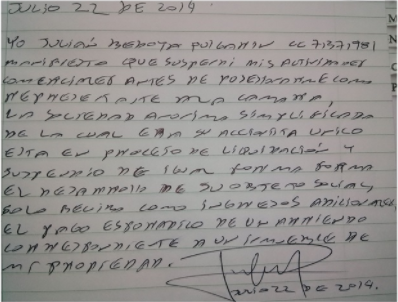 JULIO 22 DE 2019.
YO JULIÁN BEDOYA PULGARIN CC 71371981
MANIFIESTO QUE SUSPENDI MIS ACTIVIDADES
COMERCIALES ANTES DE POSESIONARME COMO
REPRESENTANTE A LA CAMARA,
LA SOCIEDAD ANONIMA SIMPLIFICADA
DE LA CUAL ERA SU ACCIONISTA UNICO
ESTA EN PROCESO DE LIQUIDACIÓN Y
SUSPENDIO DE IGUAL FORMA
EL DESARROLLO DE SU OBJETO SOCIAL,
SOLO RECIBO COMO INGRESOS ADICIONALES,
EL PAGO ESPORADICO DE UN ARRIENDO
CORRESPONDIENTE A UN INMUEBLE DE
MI PROPIEDAD.
JULIO 22 DE 2019.
M
N
C
P